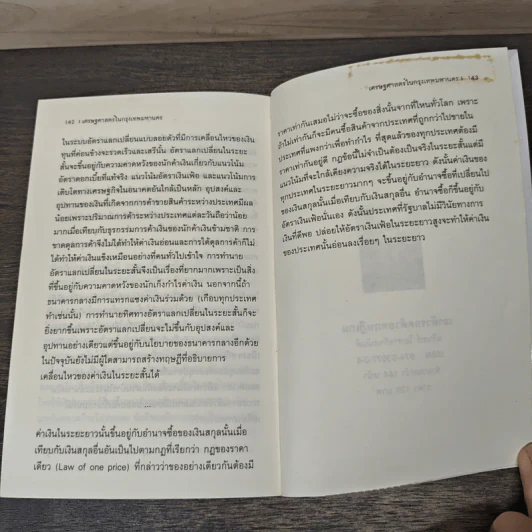 142 : เศรษฐศาสตร์ในกรุงเทพมหานคร
ในระบบอัตราแลกเปลี่ยนแบบลอยตัวที่มีการเคลื่อนไหวของเงิน
ทุนที่ค่อนข้างจะรวดเร็วและเสรีนั้น อัตราแลกเปลี่ยนในระยะ
สั้นจะขึ้นอยู่กับความคาดหวังของนักค้าเงินเกี่ยวกับแนวโน้ม
อัตราดอกเบี้ยที่แท้จริง แนวโน้มอัตราเงินเฟ้อ และแนวโน้มการ
เติบโตทางเศรษฐกิจในอนาคตอันใกล้เป็นหลัก อุปสงค์และ
อุปทานของเงินที่เกิดจากการค้าขายสินค้าระหว่างประเทศมีผล
น้อยเพราะปริมาณการค้าระหว่างประเทศแต่ละวันถือว่าน้อย
มากเมื่อเทียบกับธุรกรรมการค้าเงินของนักค้าเงินข้ามชาติ การ
ขาดดุลการค้าจึงไม่ได้ทำให้ค่าเงินอ่อนและการได้ดุลการค้าก็ไม่
ได้ทำให้ค่าเงินแข็งเหมือนอย่างที่คนทั่วไปเข้าใจ การทำนาย
อัตราแลกเปลี่ยนในระยะสั้นจึงเป็นเรื่องที่ยากมากเพราะเป็นสิ่ง
ที่ขึ้นอยู่กับความคาดหวังของนักเก็งกำไรค่าเงิน นอกจากนี้ถ้า
ธนาคารกลางมีการแทรกแซงค่าเงินร่วมด้วย (เกือบทุกประเทศ
ทำเช่นนั้น) การทำนายทิศทางอัตราแลกเปลี่ยนในระยะสั้นก็จะ
ยิ่งยากขึ้นเพราะอัตราแลกเปลี่ยนจะไม่ขึ้นกับอุปสงค์และ
อุปทานอย่างเดียวแต่ขึ้นอยู่กับนโยบายของธนาคารกลางอีกด้วย
ในปัจจุบันยังไม่มีผู้ใดสามารถสร้างทฤษฎีที่อธิบายการ
เคลื่อนไหวของค่าเงินในระยะสั้นได้
...
ค่าเงินในระยะยาวนั้นขึ้นอยู่กับอำนาจซื้อของเงินสกุลนั้นเมื่อ
เทียบกับเงินสกุลอื่นอันเป็นไปตามกฎที่เรียกว่า กฎของราคา
เดียว (Law of one price) ที่กล่าวว่าของอย่างเดียวกันต้องมี
เศรษฐศาสตร์ในกรุงเทพมหานคร : 143
ราคาเท่ากันเสมอไม่ว่าจะซื้อของสิ่งนั้นจากที่ไหนทั่วโลก เพราะ
ถ้าไม่เท่ากันก็จะมีคนซื้อสินค้าจากประเทศที่ถูกกว่าไปขายใน
ประเทศที่แพงกว่าเพื่อทำกำไร ที่สุดแล้วของทุกประเทศต้องมี
ราคาเท่ากันอยู่ดี กฎข้อนี้ไม่จำเป็นต้องเป็นจริงในระยะสั้นแต่มี
แนวโน้มที่จะใกล้เคียงความจริงได้ในระยะยาว ดังนั้นค่าเงินของ
ทุกประเทศในระยะยาวมากๆ จะขึ้นอยู่กับอำนาจซื้อที่เปลี่ยนไป
ของเงินสกุลนั้นเมื่อเทียบกับเงินสกุลอื่น อำนาจซื้อก็ขึ้นอยู่กับ
อัตราเงินเฟ้อนั่นเอง ดังนั้นประเทศที่รัฐบาลไม่มีวินัยทางการ
เงินที่ดีพอ ปล่อยให้อัตราเงินเฟ้อในระยะยาวสูงจะทำให้ค่าเงิน
ของประเทศนั้นอ่อนลงเรื่อยๆ ในระยะยาว